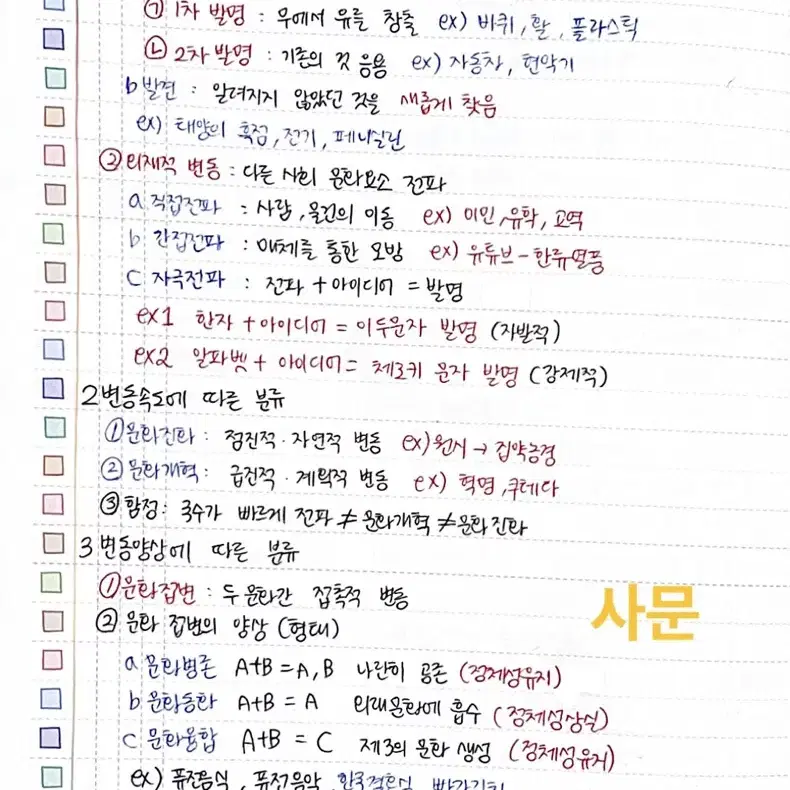 ㉠ 1차 발명 : 무에서 유를 창출 ex) 바퀴, 활, 플라스틱
㉡ 2차 발명 : 기존의 것 응용 ex) 자동차, 현악기
b 발견 : 알려지지 않았던 것을 새롭게 찾음
ex) 태양의 흑점, 전기, 페니실린
② 외재적 변동 : 다른 사회 문화요소 전파
a 직접전파 : 사람, 물건의 이동 ex) 이민, 유학, 교역
b 간접전파 : 매체를 통한 모방 ex) 유튜브 - 한류열풍
C 자극전파 : 전파 + 아이디어 = 발명
ex1 한자 + 아이디어 = 이두문자 발명 (자발적)
ex2 알파벳 + 아이디어 = 체로키 문자 발명 (강제적)
2 변동속도에 따른 분류
① 문화진화 : 점진적·자연적 변동 ex) 원시 → 집약농경
② 문화개혁 : 급진적·계획적 변동 ex) 혁명, 쿠데타
③ 함정 : 국수가 빠르게 전파 ≠ 문화개혁 ≠ 문화진화
3 변동양상에 따른 분류
① 문화접변 : 두 문화간 접촉적 변동
사문
② 문화 접변의 양상 (형태)
a 문화병존 A+B = A, B 나란히 공존 (정체성유지)
b 문화동화 A+B = A 외래문화에 흡수 (정체성상실)
C 문화융합 A+B = C 제3의 문화 생성 (정체성유지)
ex) 퓨전음식, 퓨전음악,